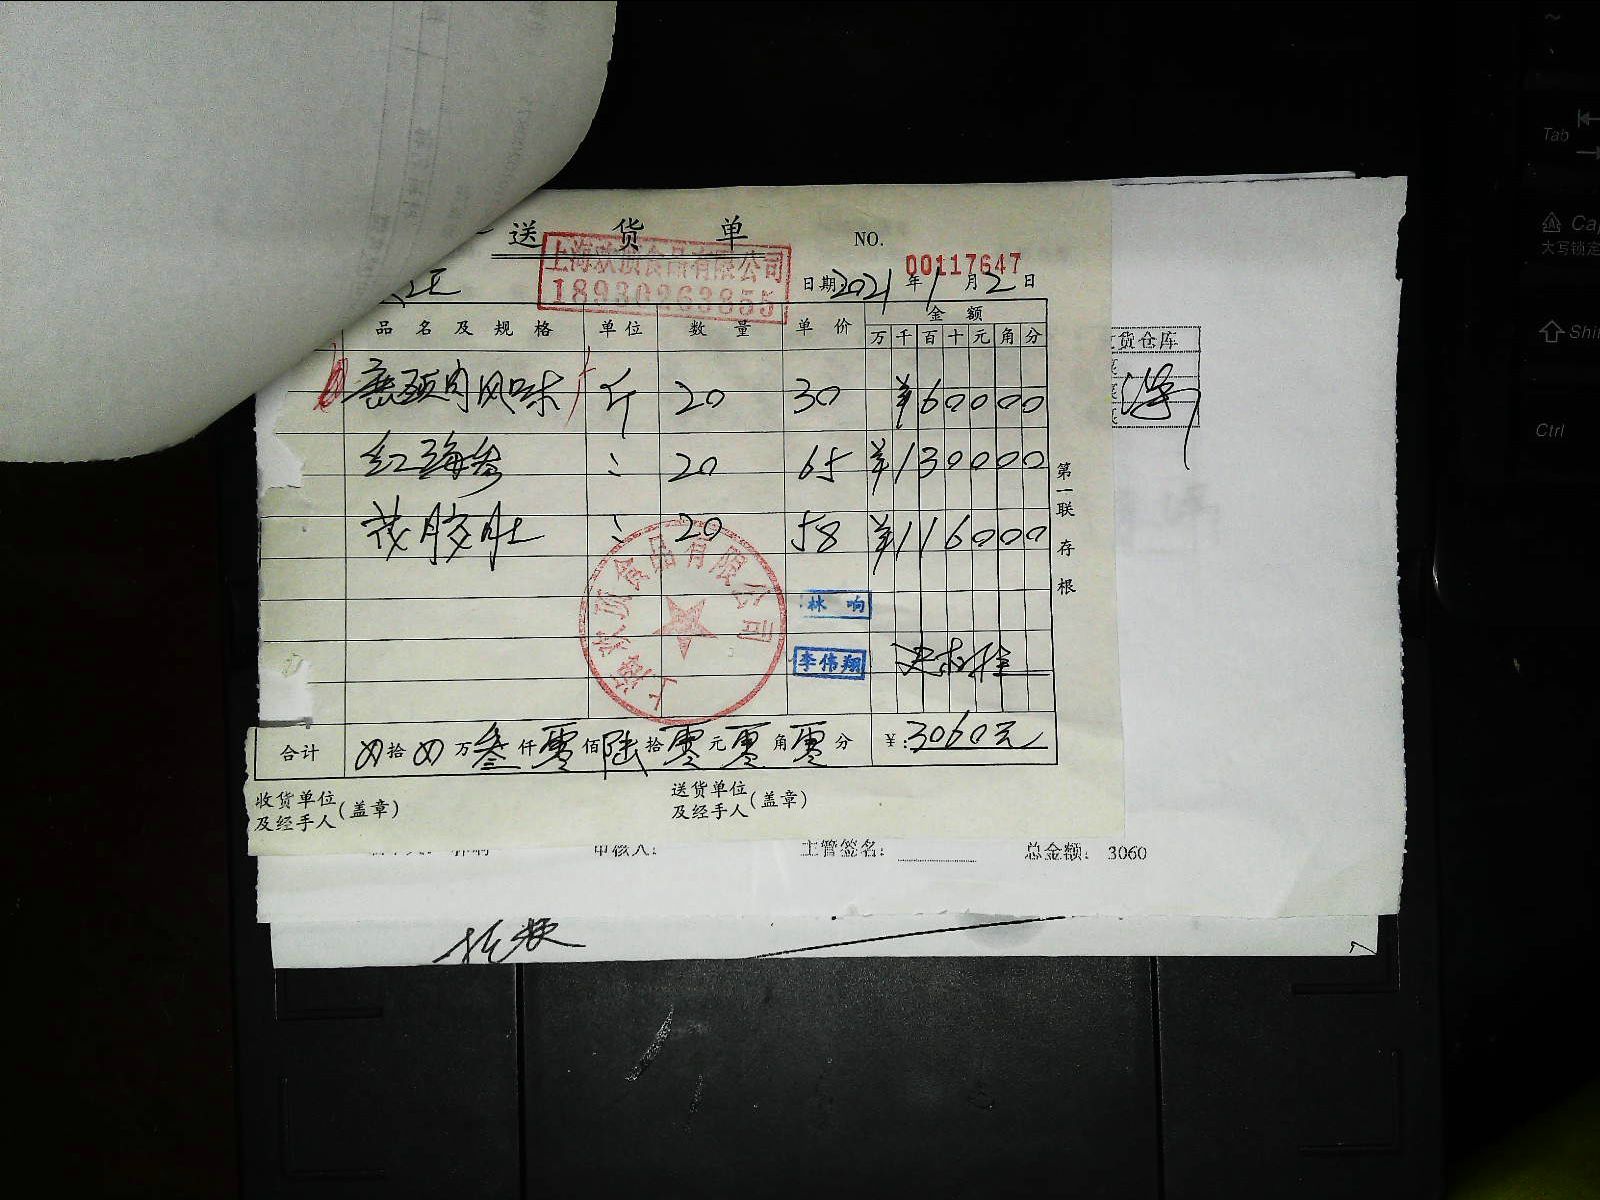 送 货 单
NO.
00117647
上海欢顶食品有限公司
18930363855
日期:2021年1月2日
品名及规格 单位 数量 单价 金额
万 千 百 十 元 角 分
肉风味 斤 20 30 ¥60000
红海参 〃 20 65 ¥130000
胶肚 〃 20 58 ¥116000
上海欢顶食品有限公司
林 响
李伟翔
第一联 存根
合计 拾 万叁仟零佰陆拾零元零角零分 ¥:3060元
收货单位
及经手人(盖章)
送货单位
及经手人(盖章)
货仓库
审核人:
主管签名:
总金额: 3060
Tab
大写锁定
Ctrl